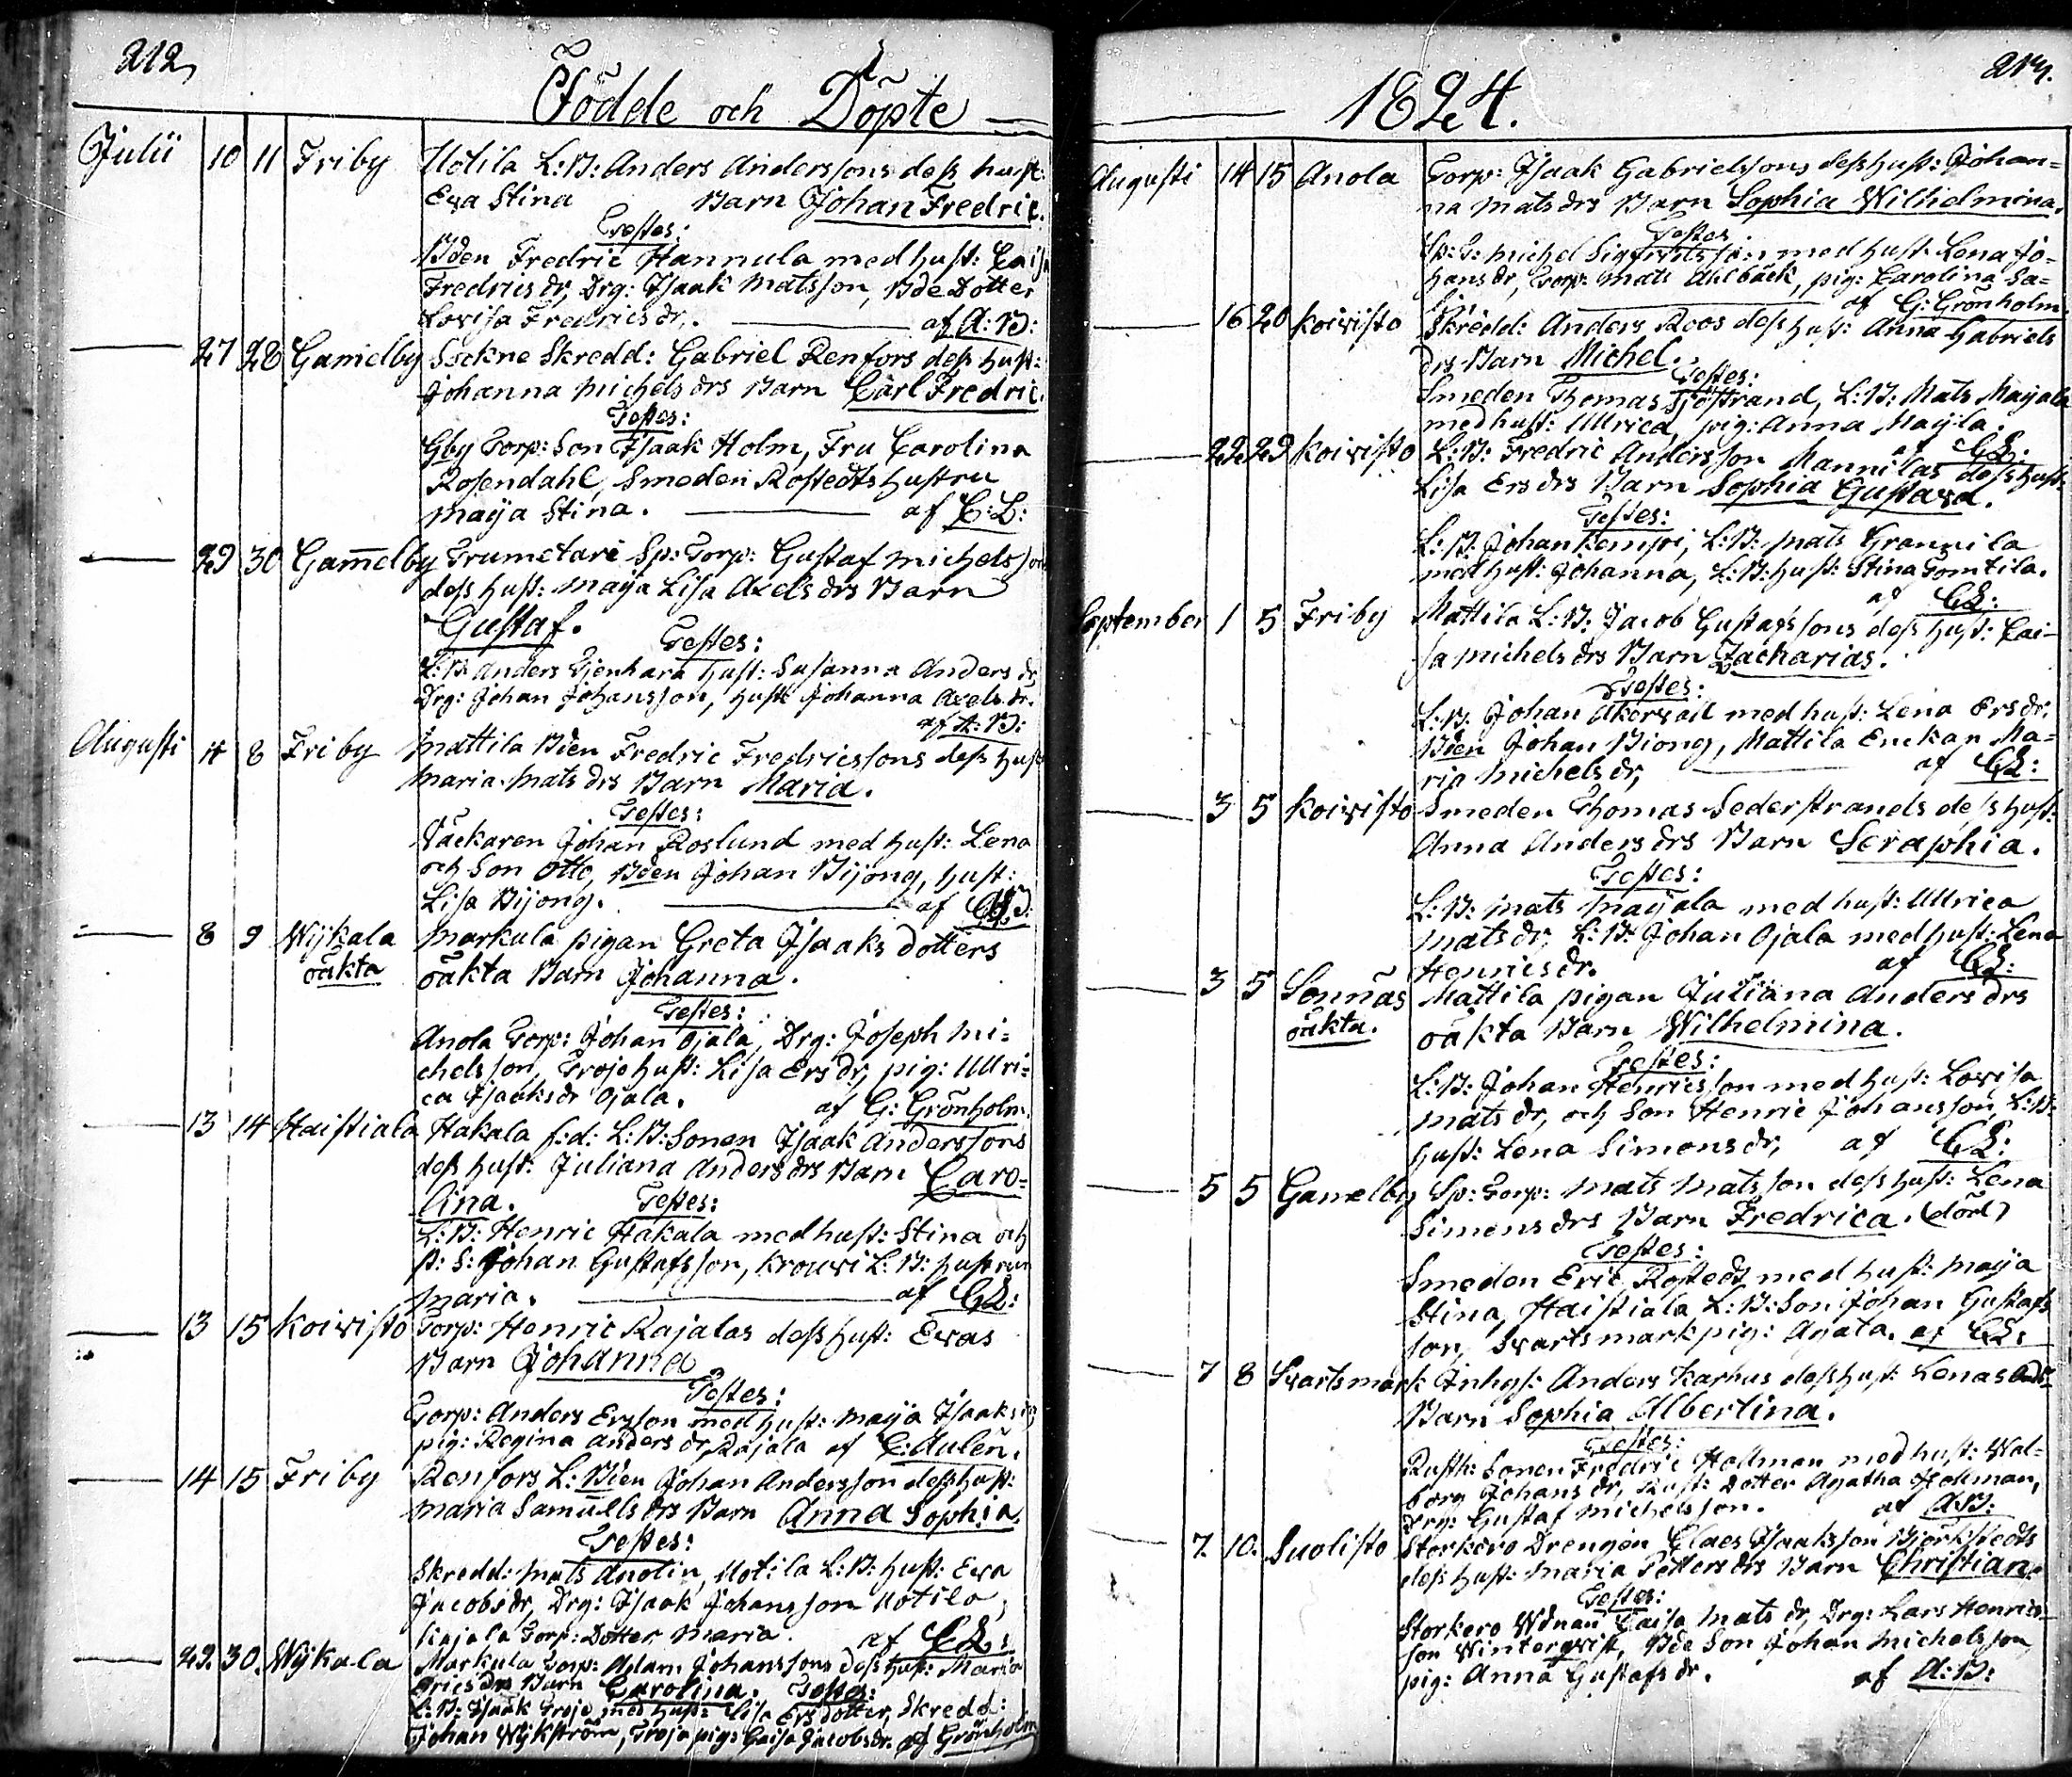 212
Födde och Döpte
Julii 10 11 Friby Uotila L:B: Anders Anderssons dess hust:
Eva Stina Barn Johan Fredric.
Testes:
Bden Fredric Hannula med hust: Caisa
Fredricsdr, Drg: Isaak Matsson, Bde Dotter
Lovisa Fredricsdr. af A:B:
27 28 Gamelby Sockne Skredd: Gabriel Renfors dess hust:
Johanna Michelsdrs Barn Carl Fredric.
Testes:
Gby Torp: Son Isaak Holm, Fru Carolina
Rosendahl, Smeden Rostedts hustru
Maija Stina. af C:L:
29 30 Gamelby Trumetare Sp: Torp: Gustaf Michelsson
dess hust: Maija Lisa Axelsdrs Barn
Gustaf. Testes:
L:B: Anders Gjenhara hust: Susanna Andersdr,
Drg: Johan Johansson, hust: Johanna Axelsdr.
af A:B:
Augusti 4 8 Friby Mattila Bden Fredric Fredricssons dess hust
Maria Matsdrs Barn Maria.
Testes:
Väckaren Johan Roslund med hust: Lena
och Son Otto, Bden Johan Bijong, hust:
Lisa Bijong. af
8 9 Wijkala Markula pigan Greta Isaaks dotters
oäkta oäkta Barn Johanna.
Testes:
Anola Torp: Johan Ojala, Drg: Joseph Mi=
chelsson, Trojo hust: Lisa Ersdr, pig: Ulri=
ca Isaksdr Ojala. af G: Grönholm
13 14 Haistiala Hakala f:d: L:B: Sonen Isaak Anderssons
dess hust: Juliana Andersdrs Barn Caro=
lina. Testes:
L:B: Henric Hakala med hust: Stina och
S: Johan Gustafsson, Krouvi L:B: hustrun
Maria. af CL:
13 15 Koivisto Torp: Henric Rajalas dess hust: Evas
Barn Johanna
Testes:
Torp: Anders Ersson med hust: Maija Isaaks
pig: Regina Andersdr Rajala af C: Aulén.
14 15 Friby Renfors L: Bden Johan Andersson dess hust:
Maria Samuelsdrs Barn Anna Sophia.
Testes:
Skredd: Mats Anolin, Uotila L:B: hust: Eva
Jacobsdr, Drg: Isaak Johansson Uotila,
Rajala Torp: Dotter Maria. af CL:
29. 30. Wijkala Markula Torp: Adam Johanssons dess hust: Maria
Ericsdrs Barn Carolina. Testes:
L:B: Isaak Trojo med hust: Lisa Ersdotter, Skredd:
Johan Wijkström, Trojo pig: Caisa Jacobsdr. af Grönholm
1824.
Augusti 14 15 Anola Torp: Isaak Gabrielssons dess hust: Johan=
na Matsdrs Barn Sophia Wilhelmina.
Testes
Sp: T: Michel Sigfridsson med hust: Lena Jo=
hansdr, Torp: Mats Ahlbäck, pig: Carolina Sa=
af G: Grönholm
16 20 Koivisto Skredd: Anders Roos dess hust: Anna Gabriels
drs Barn Michel.
Testes:
Smeden Thomas Sjöstrand, L:B: Mats Maijala
med hust: Ulrica, pig: Anna Maijla.
af CL:
22 29 Koivisto L:B: Fredric Andersson Mannilas dess hust:
Lisa Ersdrs Barn Sophia Gustava.
Testes:
L:B: Johan Kemppi, L:B: Mats Grannila
med hust: Johanna, L:B: hust: Stina Tomtila.
af CL:
September 1 5 Friby Mattila L:B: Jacob Gustafssons dess hust: Cai=
sa Michelsdrs Barn Zacharias.
Testes:
L:B: Johan Akervall med hust: Lena Ersdr,
Bden Johan Biong, Mattila Enckan Ma=
ria Michelsdr, af CL:
3 5 Koivisto Smeden Thomas Sederstrands dess hust:
Anna Andersdrs Barn Seraphia.
Testes:
L:B: Mats Maijala med hust: Ulrica
Matsdr, L:B: Johan Ojala med hust: Lena
Henricsdr. af CL:
3 5 Sonnäs Mattila pigan Juliana Andersdrs
oäkta. oäkta Barn Wilhelmina.
Testes:
L:B: Johan Henricsson med hust: Lovisa
Matsdr, och Son Henric Johansson, L:B:
hust: Lena Simonsdr, af CL:
5 5 Gamelby Sp: Torp: Mats Matsson dess hust: Lena
Simonsdrs Barn Fredrica. (död)
Testes:
Smeden Eric Rostedt med hust: Maija
Stina, Haistiala L:B: Son Johan Gustafs
son, Svartsmark pig: Agata. af CL:
7 8 Svartsmark Inhys: Anders Karhus dess hust: Lenas
Barn Sophia Albertina.
Testes:
Rusth: Sonen Fredric Hollman med hust: Wal=
borg Johansdr, Rust: Dotter Agatha Hollman,
Drg: Gustaf Michelsson. af A:B:
7. 10. Suolisto Storkoro Drengen Claes Isaksson Björkstedts
dess hust: Maria Pettersdrs Barn Christian.
Testes:
Storkoro Wdnan Caisa Matsdr, Drg: Lars Henrics=
son Winterqvist, Bde Son Johan Michelsson,
pig: Anna Gustafsdr. af A:B: